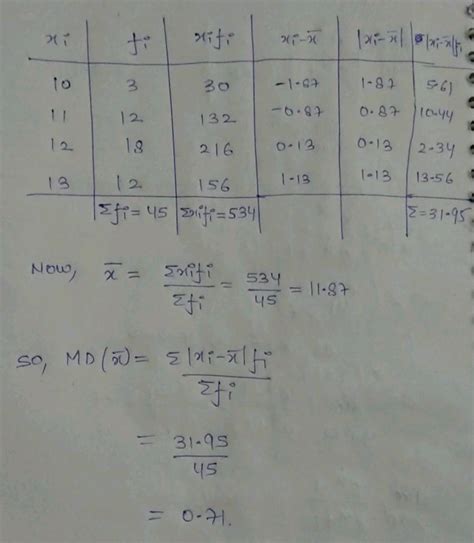 xi fi xifi xi-x̄ |xi-x̄| |xi-x̄|fi
10 3 30 -1.87 1.87 5.61
11 12 132 -0.87 0.87 10.44
12 18 216 0.13 0.13 2.34
13 12 156 1.13 1.13 13.56
Σfi = 45 Σxifi = 534 Σ = 31.95
Now, x̄ = Σxifi / Σfi = 534 / 45 = 11.87
So, MD(x̄) = Σ|xi-x̄|fi / Σfi
= 31.95 / 45
= 0.71.